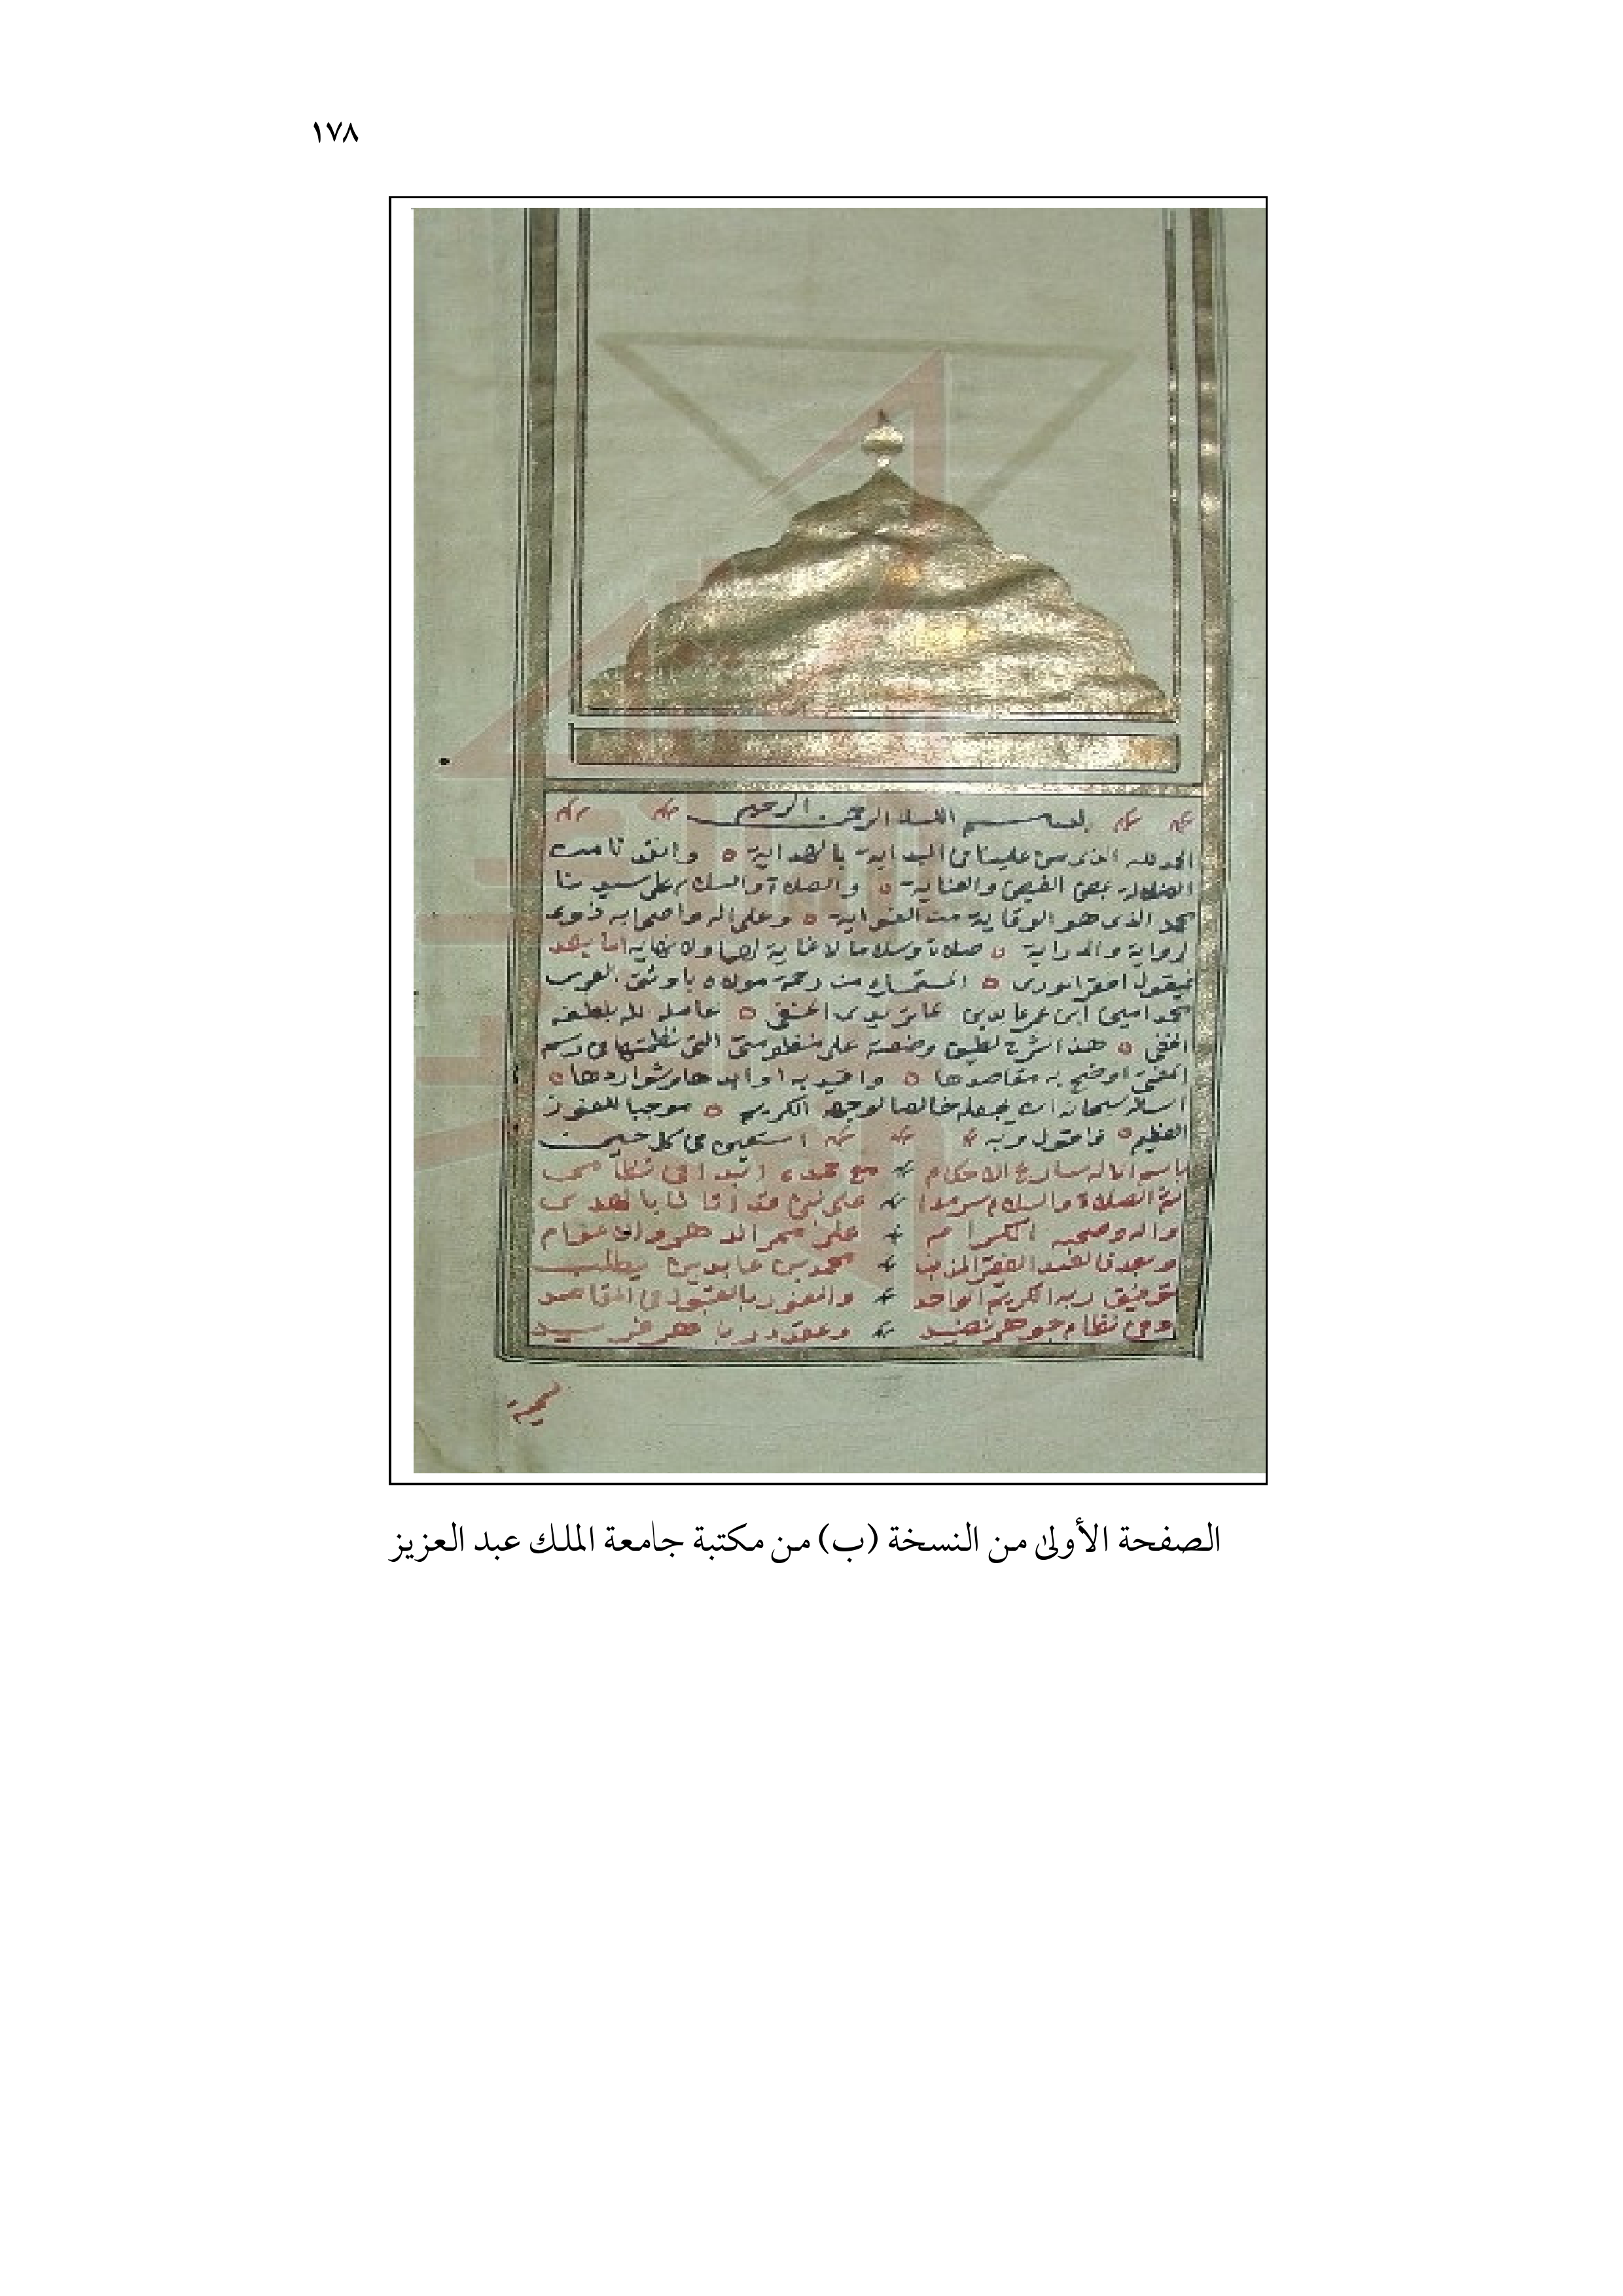 ١٧٨
بسم الله الرحمن الرحيم
الحمد لله الذى من علينا فى البداية بالهداية ٥ وانقذنا من
الضلالة بمحض الفيض والعناية ٥ والصلاة والسلام على سيدنا
محمد الذى هو الوقاية من الغواية ٥ وعلى اله واصحابه ذوى
الرواية والدراية ٥ صلاة وسلاما لا غاية لهما ولا نهاية اما بعد
فيقول افقر الورى ٥ المستمسك من رحمة مولاه باوثق العرى
محمد امين ابن عمر عابدين الحنفى ٥ عامله الله بلطفه
الخفى ٥ هذا شرح لطيف وضعته على منظومتى التى نظمتها فى رسم
المفتى اوضح به مقاصدها ٥ واقيد به اوابدها وشواردها ٥
اساله سبحانه ان يجعله خالصا لوجهه الكريم ٥ موجبا للفوز
العظيم ٥ فاقول وبه استعين فى كل حين
باسم الاله شارع الاحكام مع حمده ابدا فى نظامى
ثم الصلاة والسلام سرمدا على نبى قد اتانا بالهدى
واله وصحبه الكرام على ممر الدهر والاعوام
وبعد فالعبد الفقير المذنب محمد بن عابدين يطلب
توفيق ربه الكريم الواحد والفوز بالقبول فى المقاصد
وفى نظام جوهر نضيد وعقد در باهر فريد
الصفحة الأولىٰ من النسخة (ب) من مكتبة جامعة الملك عبد العزيز